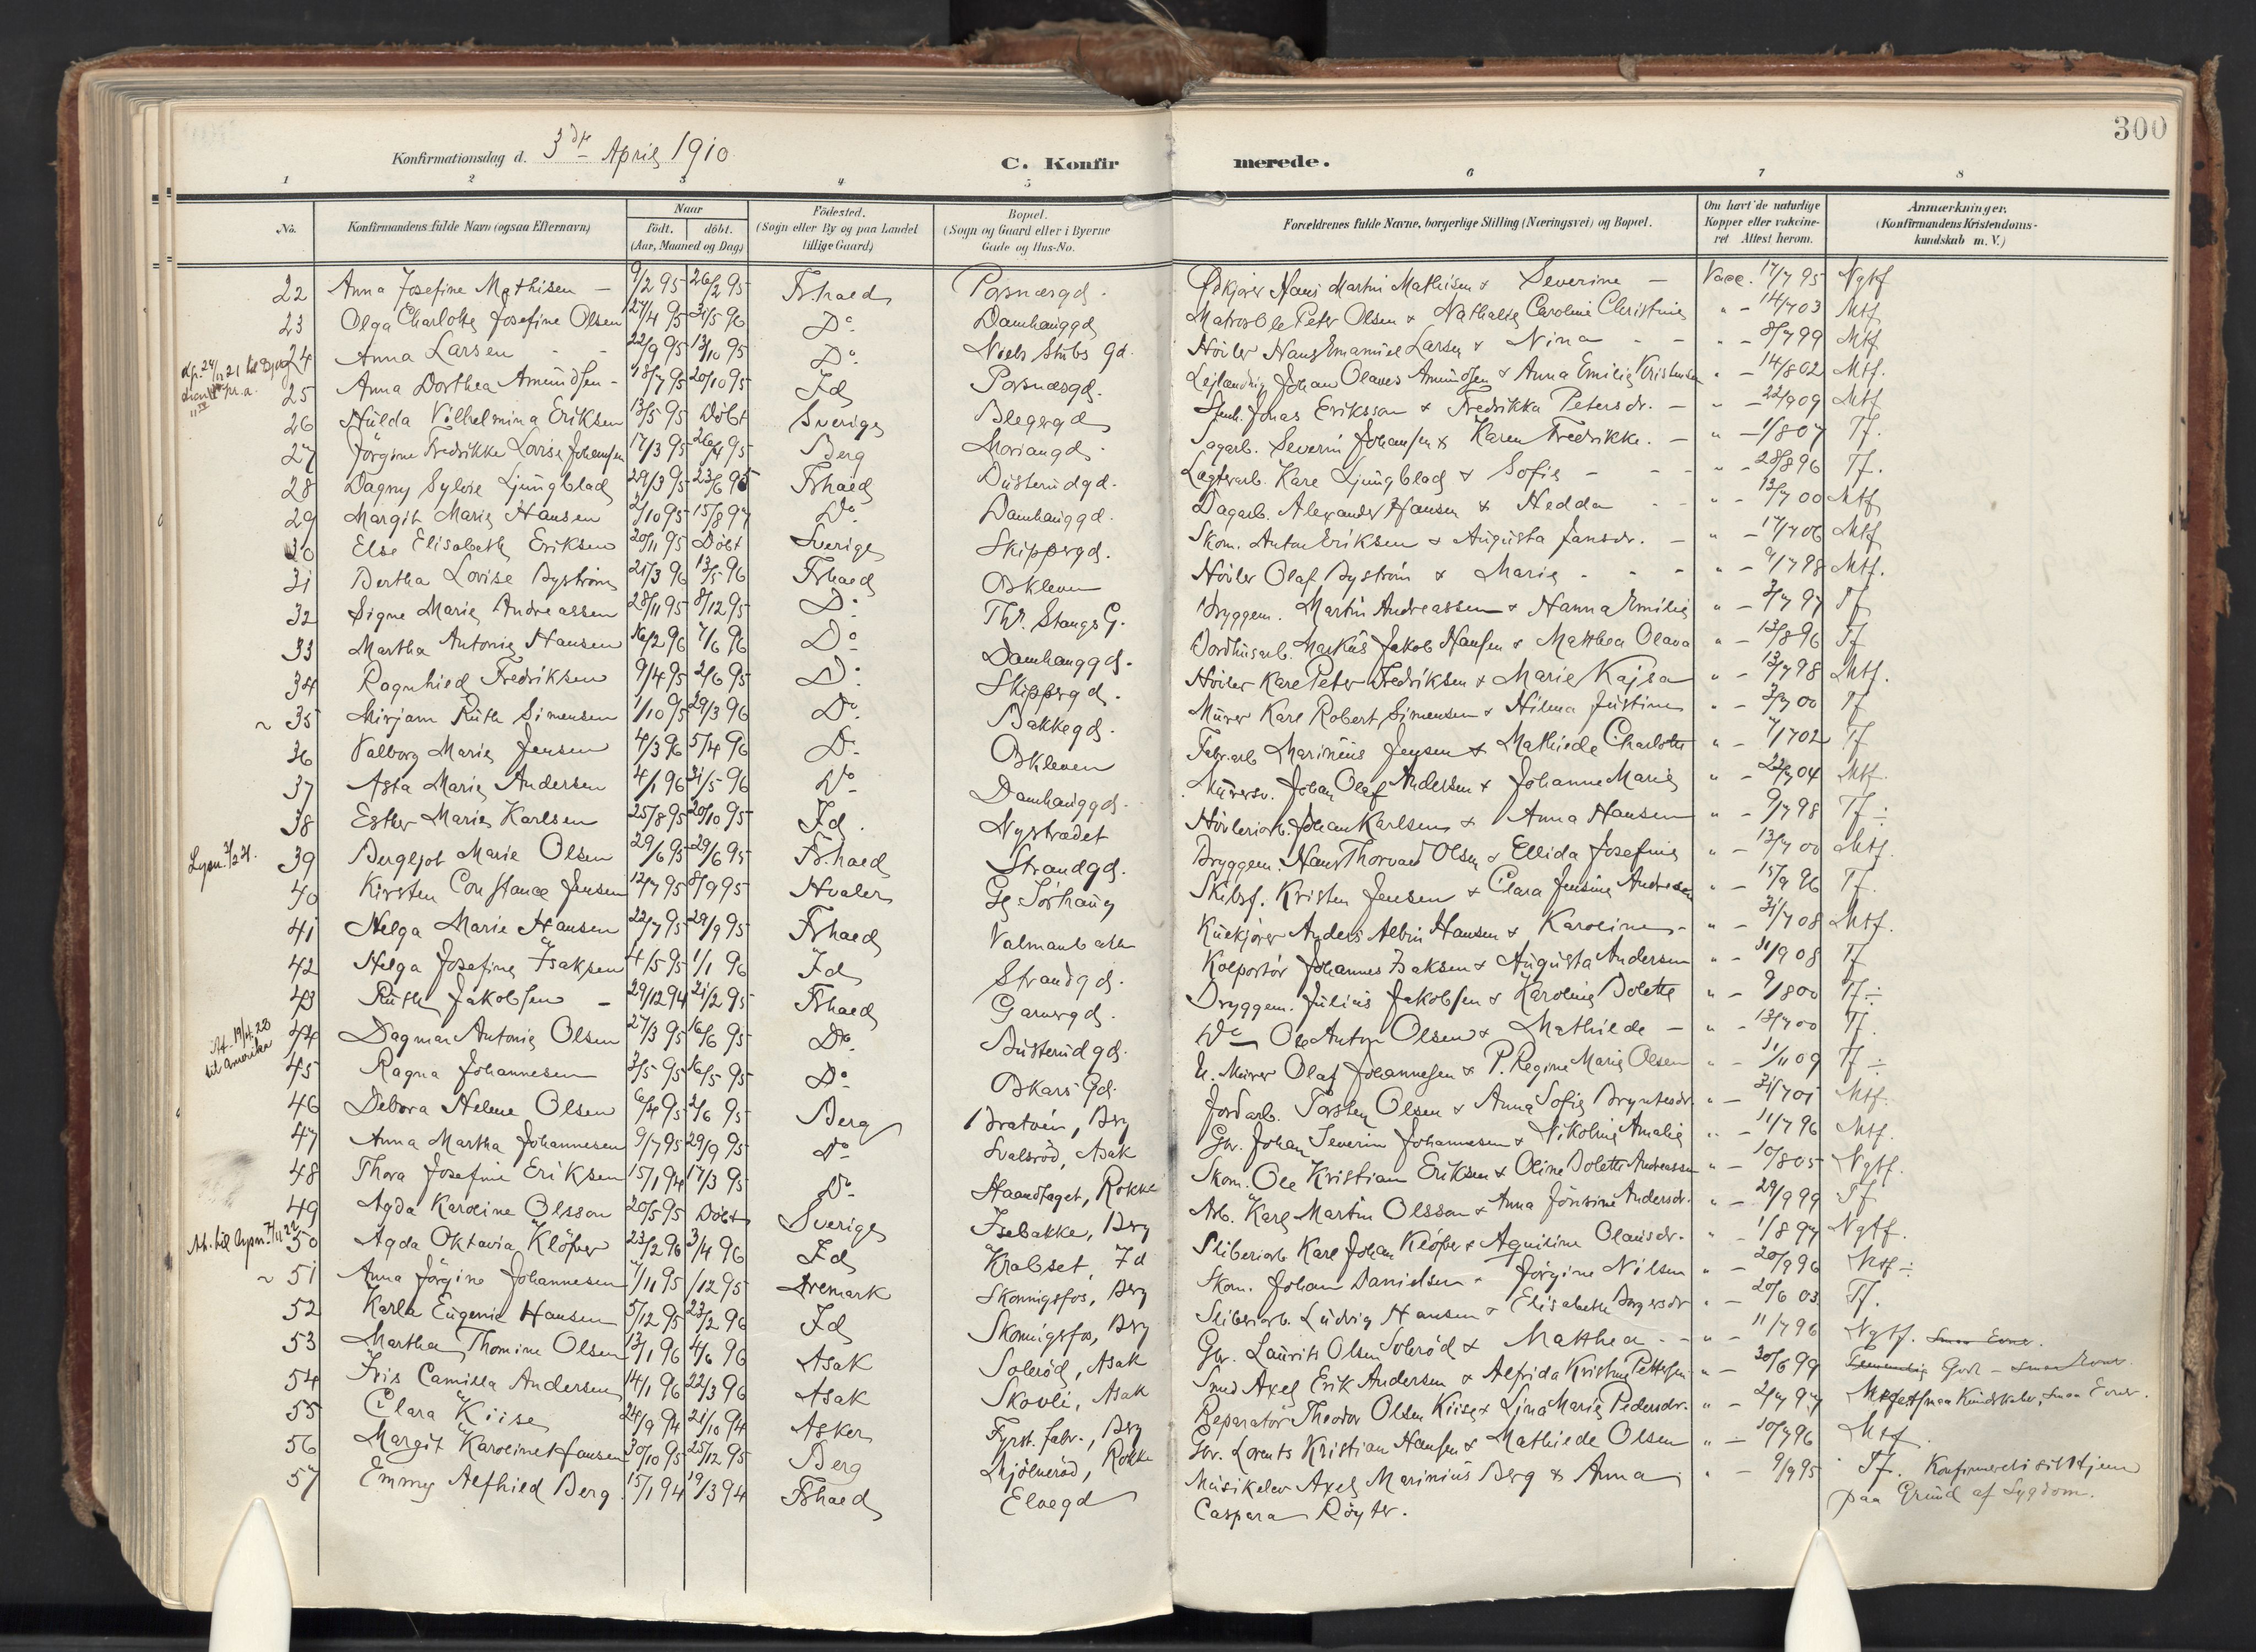 300
Konfirmationsdag d. 3die April 1910
C. Konfirmerede.
1 2 3 4 5 6 7 8
No. Konfirmandens fulde Navn (ogsaa Efternavn) Naar födt. döbt. (Aar, Maaned og Dag) Födested. (Sogn eller By og paa Landet tillige Gaard) Bopæl. (Sogn og Gaard eller i Byerne Gade og Hus-No. Forældrenes fulde Navne, borgerlige Stilling (Næringsvei) og Bopæl. Om havt de naturlige Kopper eller vakcineret Attest herom. Anmærkninger. (Konfirmandens Kristendomskundskab m. V.)
22 Anna Josefine Mathisen – 9/2 95 26/2 95 Frhald Porsnæsgd. Hans Martin Mathisen & Severine – Vacc. 17/7 95 Ngtf
23 Olga Charlotte Josefine Olsen 27/4 95 31/5 96 Do Damhauggd Matros Ole Peter Olsen & Nathalie Caroline Christine " – 14/7 03 Mtf
24 Anna Larsen 22/9 95 13/10 95 Do Niels Stubs gd. Hövler Hans Emanuel Larsen & Nina – " – 8/7 99 Mtf
25 Anna Dorthea Amundsen – 18/7 95 20/10 95 Id Porsnæsgd. Johan Olaves Amundsen & Anna Emilie Kristensen " – 14/8 02 Mtf.
26 Hulda Vilhelmina Eriksen 13/5 95 Döbt Sverige Blegergd Jonas Eriksson & Fredrikka Petersdr. – " – 22/9 09 Mtf
27 Jörgine Fredrikke Lovise Johansen 17/3 95 26/4 95 Berg Moriangd. Sagarb. Severin Johansen & Karen Fredrikke. – " – 1/8 07 Tf.
28 Dagny Sylvie Ljungblad 29/3 95 23/6 95 Frhald Busterudgd. Lagterarb. Karl Ljungblad & Sofie – " – 28/8 96 Tf.
29 Margit Marie Hansen 2/10 95 15/8 97 Do Damhauggd. Dagarb. Alexander Hansen & Hedda – " – 13/7 00 Mtf
30 Else Elisabeth Eriksen 20/11 95 Döbt Sverige Skippergd. Skom. Anton Eriksen & Augusta Jansdr. – " – 17/7 06 Mtf
31 Bertha Lovise Byström 21/3 96 13/5 96 Frhald Bkleven Hövler Olaf Byström & Marie – " – 9/7 98 Mtf.
32 Signe Marie Andreassen 28/11 95 8/12 95 Do Th. Stangs G. Bryggem. Martin Andreassen & Hanna Emilie " – 3/7 97 Tf
33 Martha Antonie Hansen 16/2 96 7/6 96 Do Damhauggd. Markus Jakob Hansen & Matthea Olava " – 13/8 96 Tf
34 Ragnhild Fredriksen 9/4 95 2/6 95 Do Skippergd. Hövler Karl Peter Fredriksen & Marie Kajsa " – 13/7 98 Mtf.
~ 35 Mirjam Ruth Simensen 1/10 95 29/3 96 Do Bakkegd. Murer Karl Robert Simensen & Hilma Justine " – 3/7 00 Tf
36 Valborg Marie Jensen 4/3 96 5/4 96 Do Bkleven Fabr.arb Marinius Jensen & Mathilde Charlotte " – 4/7 02 Tf
37 Asta Marie Andersen 4/1 96 31/5 96 Do Damhauggd. Murersv. Johan Olaf Andersen & Johanne Marie " – 22/7 04 Mtf.
38 Esther Marie Karlsen 25/8 95 20/10 95 Id. Nystrædet Hövleriarb. Johan Karlsen & Anna Hansen " – 9/7 98 Tf ÷
39 Bergljot Marie Olsen 29/6 95 29/6 95 Fr.hald Strandgd. Bryggem. Hans Thorvald Olsen & Ellida Josefine " – 13/7 00 Mtf.
40 Kirsten Constance Jensen 12/7 95 8/9 95 Hvaler Gl Sörhaug Skibsf. Kristen Jensen & Clara Jensine Andresen " – 15/9 96 Tf.
41 Helga Marie Hansen 22/7 95 29/9 95 Frhald Kulkjörer Anders Albin Hansen & Karoline – " – 31/7 08 Mtf.
42 Helga Josefine Isaksen 4/5 95 1/1 96 Id Strandgd. Kolportör Johannes Isaksen & Augusta Andersen " – 11/9 08 Tf
43 Ruth Jakobsen – 29/12 94 21/2 95 Frhald Garvergd. Bryggem. Julius Jakobsen & Karoline Bolette " – 9/8 00 Tf ÷
44 Dagmar Antonie Olsen 27/3 95 16/6 95 Do. Busterudgd. Do Ole Anton Olsen & Mathilde – " – 13/7 00 Tf.
45 Ragna Johannesen 3/5 95 16/5 95 Do Bkars Gd. U. Murer Olaf Johannesen & P. Regine Marie Olsen " – 11/11 09 Tf ÷
46 Debora Helene Olsen 6/4 95 2/6 95 Berg Bratvein, Brg Jordarb. Torsten Olsen & Anna Sofie Bryntesdr. " – 31/7 01 Mtf.
47 Anna Martha Johannesen 9/7 95 29/9 95 Do Svalsröd, Asak Gbr. Johan Severin Johannesen & Nikoline Amalie " – 11/7 96 Mtf.
48 Thora Josefine Eriksen 15/1 94 17/3 95 Do Haandtaget, Rokke Skom. Ole Kristian Eriksen & Oline Bolette Andreassen " – 10/8 05 Ngtf.
49 Agda Karoline Olsson 20/5 95 Döbt Sverige Isebakke, Brg Arb. Karl Martin Olsson & Anna Andersdr. " – 29/9 99 Tf
50 Agda Oktavia Klöfver 23/2 96 3/4 96 Id Krabset, Id Sliberiarb Karl Johan Klöfver & Aguiline Olausdr. " – 1/8 97 Ngtf.
~ 51 Anna Jörgine Johannesen 4/11 95 /12 95 Öremark Skonnigsfos, Brg Skom. Johan Danielsen & Jörgine Nilsen " – 20/9 96 Mtf ÷
52 Karla Eugenie Hansen 5/12 95 23/2 96 Id Skonnigsfos, Brg Sliberiarb. Ludvig Hansen & Elisabeth " – 20/6 03 Tf.
53 Martha Thomine Olsen 13/1 96 4/6 96 Asak Soleröd, Asak Gbr. Laurits Olsen Soleröd & Matthea – " – 11/7 96 Ngtf. Smaa Evner.
54 Iris Camilla Andersen 14/1 96 22/3 96 Asak Skovli, Asak Smed Axel Erik Andersen & Alfrida Kristine Pettersen " – 30/6 99 Godt – smaa Evner.
55 Clara Kiise 24/9 94 21/10 94 Asker Fyrst. fabr., Brg Reparatör Theodor Olsen Kiise & Lina Marie Pedersdr. " – 2/7 97 smaa Kundskaber, smaa Evner.
56 Margit Karoline Hansen 30/10 95 25/12 95 Berg Mjölneröd, Rokke Gbr. Lorents Kristian Hansen & Mathilde Olsen " – 10/7 96 Mtf
57 Emmy Alfhild Berg 15/1 94 19/3 94 Frhald Elvegd Musikelev Axel Marinius Berg & Anna " – 9/9 95 Tf. Konfirmeret i sit Hjem
Caspara Röyter. paa Grund af Sygdom.
Att. 19/4 23
til Amerika